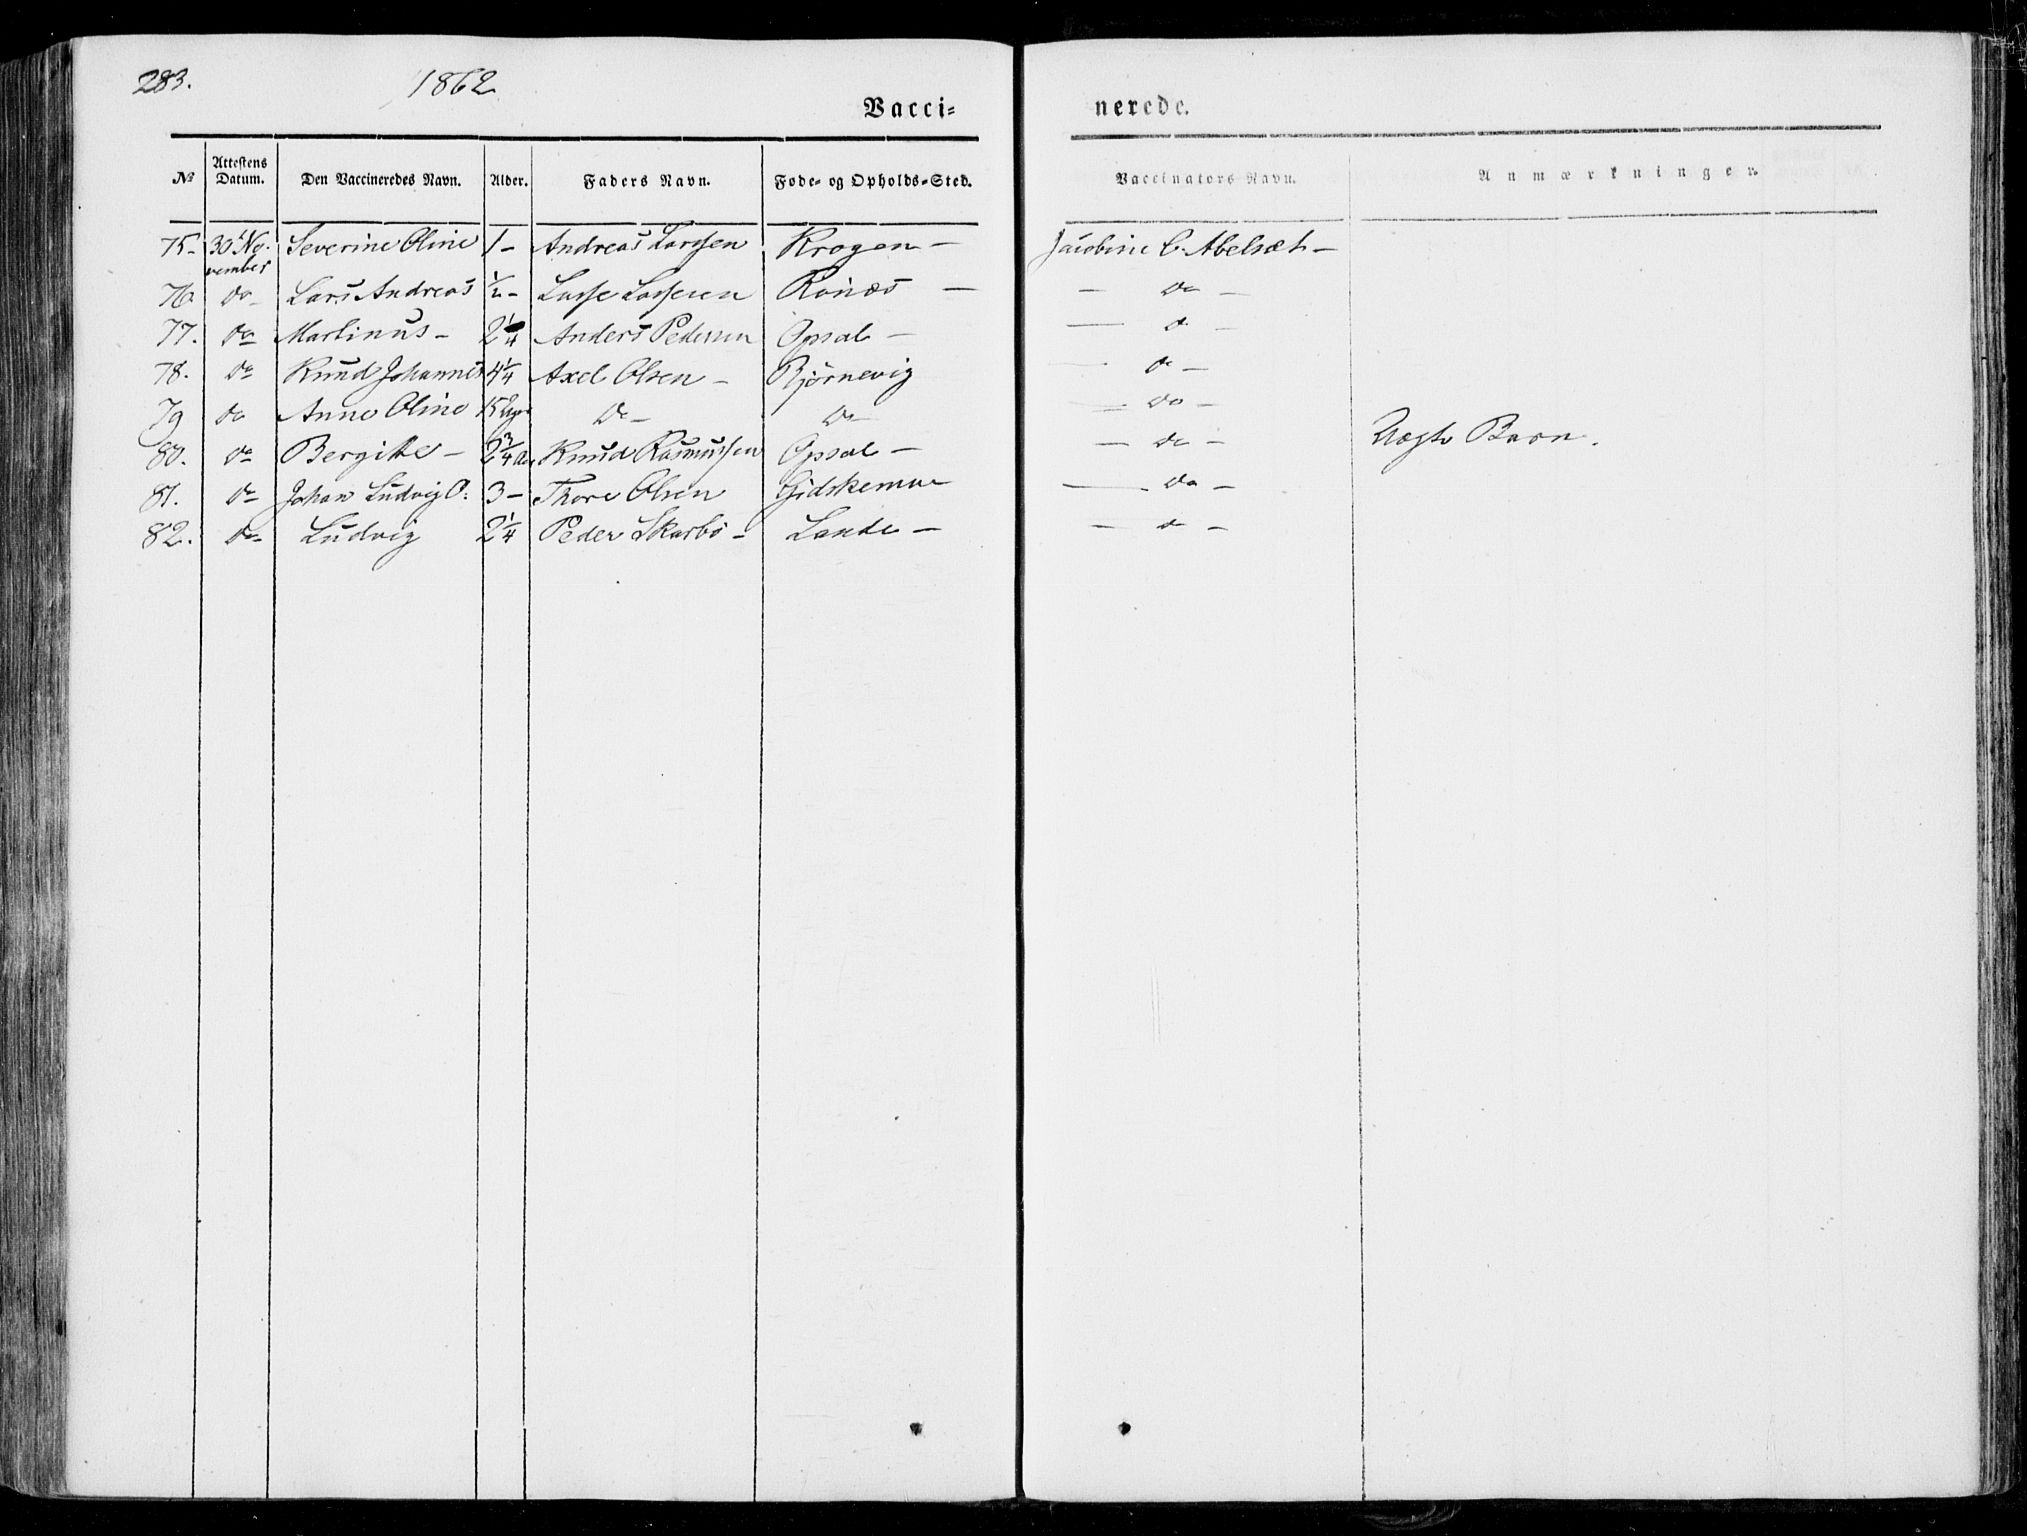 283. 1862
Vacci= nerede.
No Attestens Datum. Den Vaccineredes Navn. Alder. Faders Navn. Føde- og Opholds-Sted. Vaccinators Navn. Anmærkninger.
75- 30t No- Severine Oline 1- Andreas Larssen Krogen - Jacobine C. Abelsæt -
vember
76. do- Lars Andreas ½- Lasse Lassesen Rønæs - - do -
77. do Martinus - 2¼ Anders Pedersen Opsal - - do -
78. do Knud Johannes 4¼ Axel Olsen - Bjørnevig - do -
79 do Anne Oline 15 Uger do - do - - do -
80. do Bergitte - 2¾ Knud Rasmussen Opsal - - do - Uægte Barn.
81. do Johan Ludvig O: 3- Thore Olsen Gidskemoe - do -
82. do- Ludvig 2¼ Peder Skarbø - Lande - - do -